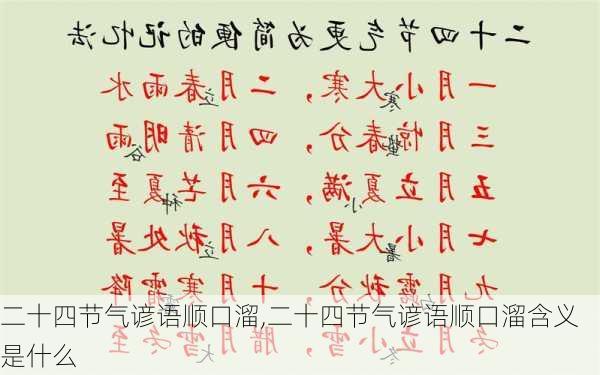 二十四节气更为简便的记忆法
一月小大寒，二月春雨水
寒 立
三月惊春分，四月清明雨
蛰 谷
五月立夏满，六月芒夏至
小 种
七月小大暑，八月秋处暑
暑 立
九月露秋分，十月寒霜降
白
冬月立小雪，腊月雪冬至
冬 大
二十四节气谚语顺口溜,二十四节气谚语顺口溜含义
是什么